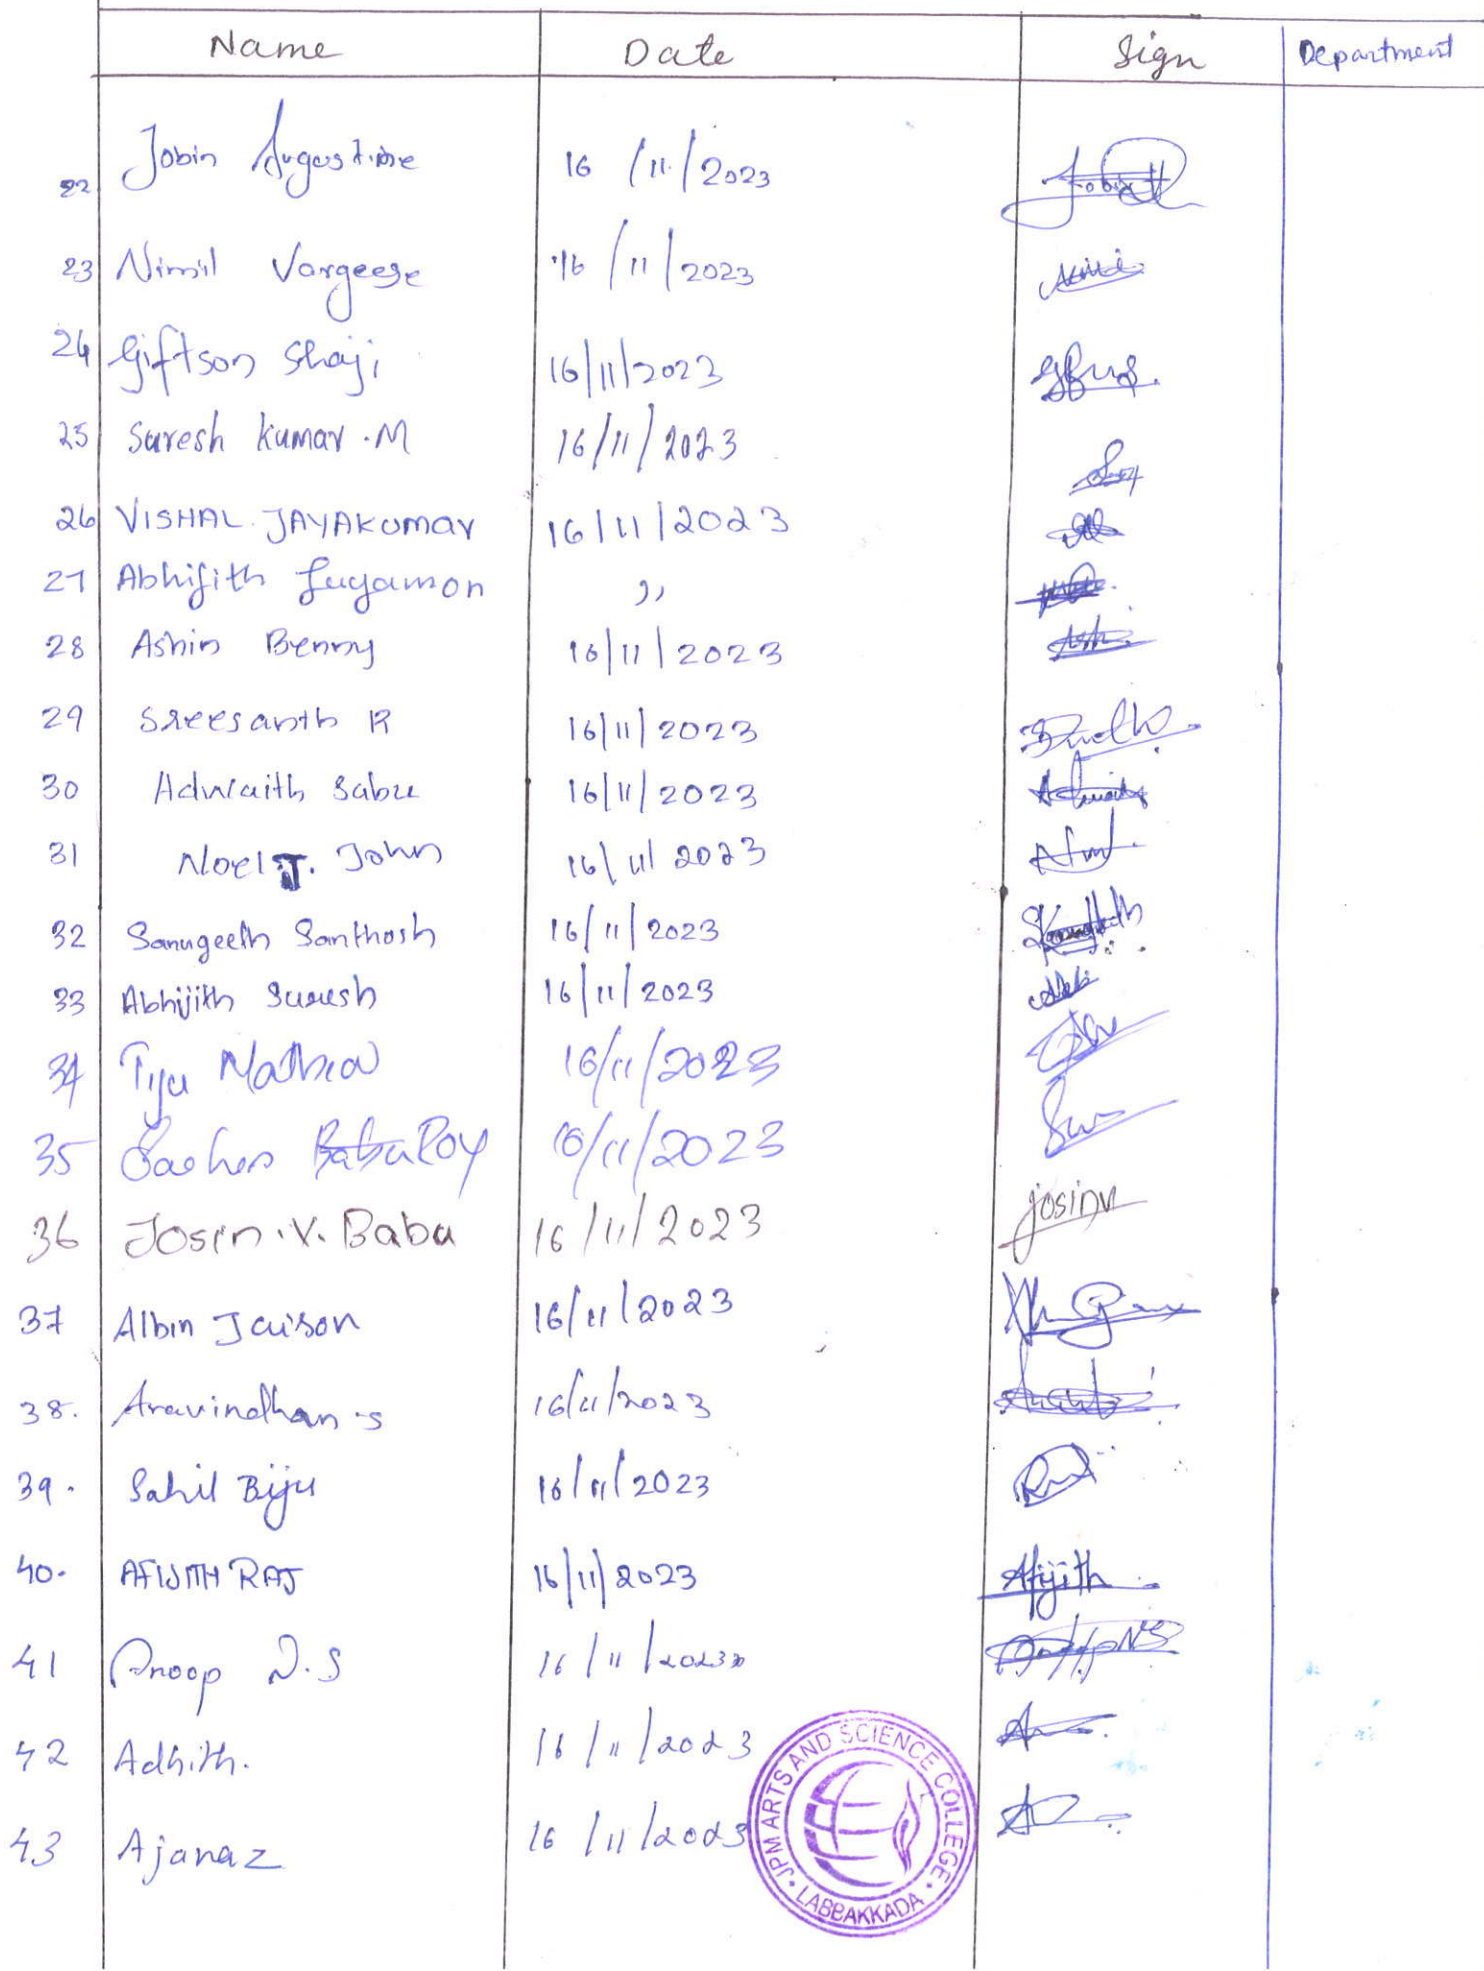 Name Date Sign Department
22 Jobin Augustine 16/11/2023
23 Nimil Vargeese 16/11/2023
24 Giftson Shaji 16/11/2023
25 Suresh kumar .M 16/11/2023
26 VISHAL JAYAKUMAR 16/11/2023
27 Abhijith ,,
28 Ashin Benny 16/11/2023
29 Sreesanth R 16/11/2023
30 Adwaith Sabu 16/11/2023
31 Noel J. John 16/11/2023
32 Sanugeeth Santhosh 16/11/2023
33 Abhijith Suresh 16/11/2023
34 Tiju Mathew 16/11/2023
35 Roy 16/11/2023
36 Josin.V. Babu 16/11/2023 josinv
37 Albin Jaison 16/11/2023
38. Aravindhan.s 16/11/2023
39. Sahil Biju 16/11/2023
40. AFIJITH RAJ 16/11/2023 Afijith
41 Anoop N.S 16/11/2023
42 Adhith. 16/11/2023
43 Ajanaz 16/11/2023
JPM ARTS AND SCIENCE COLLEGE
• LABBAKKADA •